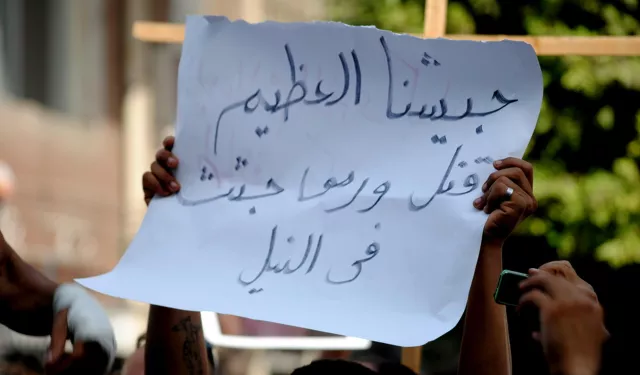 جيشنا العظيم
قتل ورموا جثث
في النيل